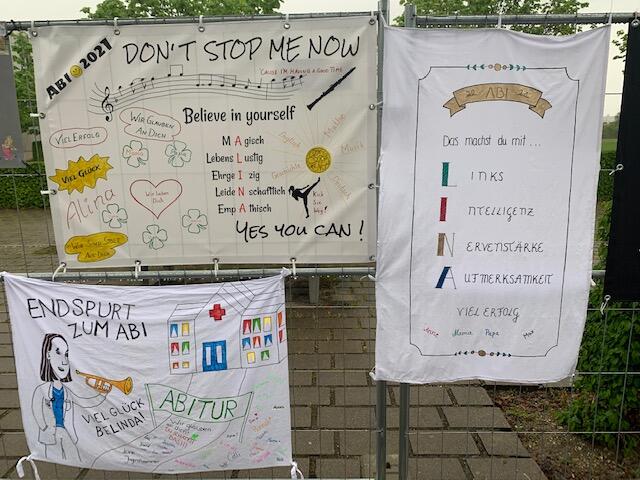 ABI 2021
DON'T STOP ME NOW
'CAUSE I'M HAVING A GOOD TIME
VIEL ERFOLG
WIR GLAUBEN
AN DICH
Believe in yourself
VIEL GLÜCK
M A gisch
Lebens L ustig
Ehrge I zig
Leide N schaftlich
Emp A thisch
Mathe
Musik
Englisch
Alina
Wir lieben
Dich
Kick
Sie
Weg!
WIR SIND STOLZ
AUF DICH
YES YOU CAN!
ABI
Das machst du mit...
LINKS
INTELLIGENZ
NERVENSTÄRKE
AUFMERKSAMKEIT
VIEL ERFOLG
Mama Papa
ENDSPURT
ZUM ABI
VIEL GLÜCK
BELINDA!
ABITUR
Wir glauben
an dich